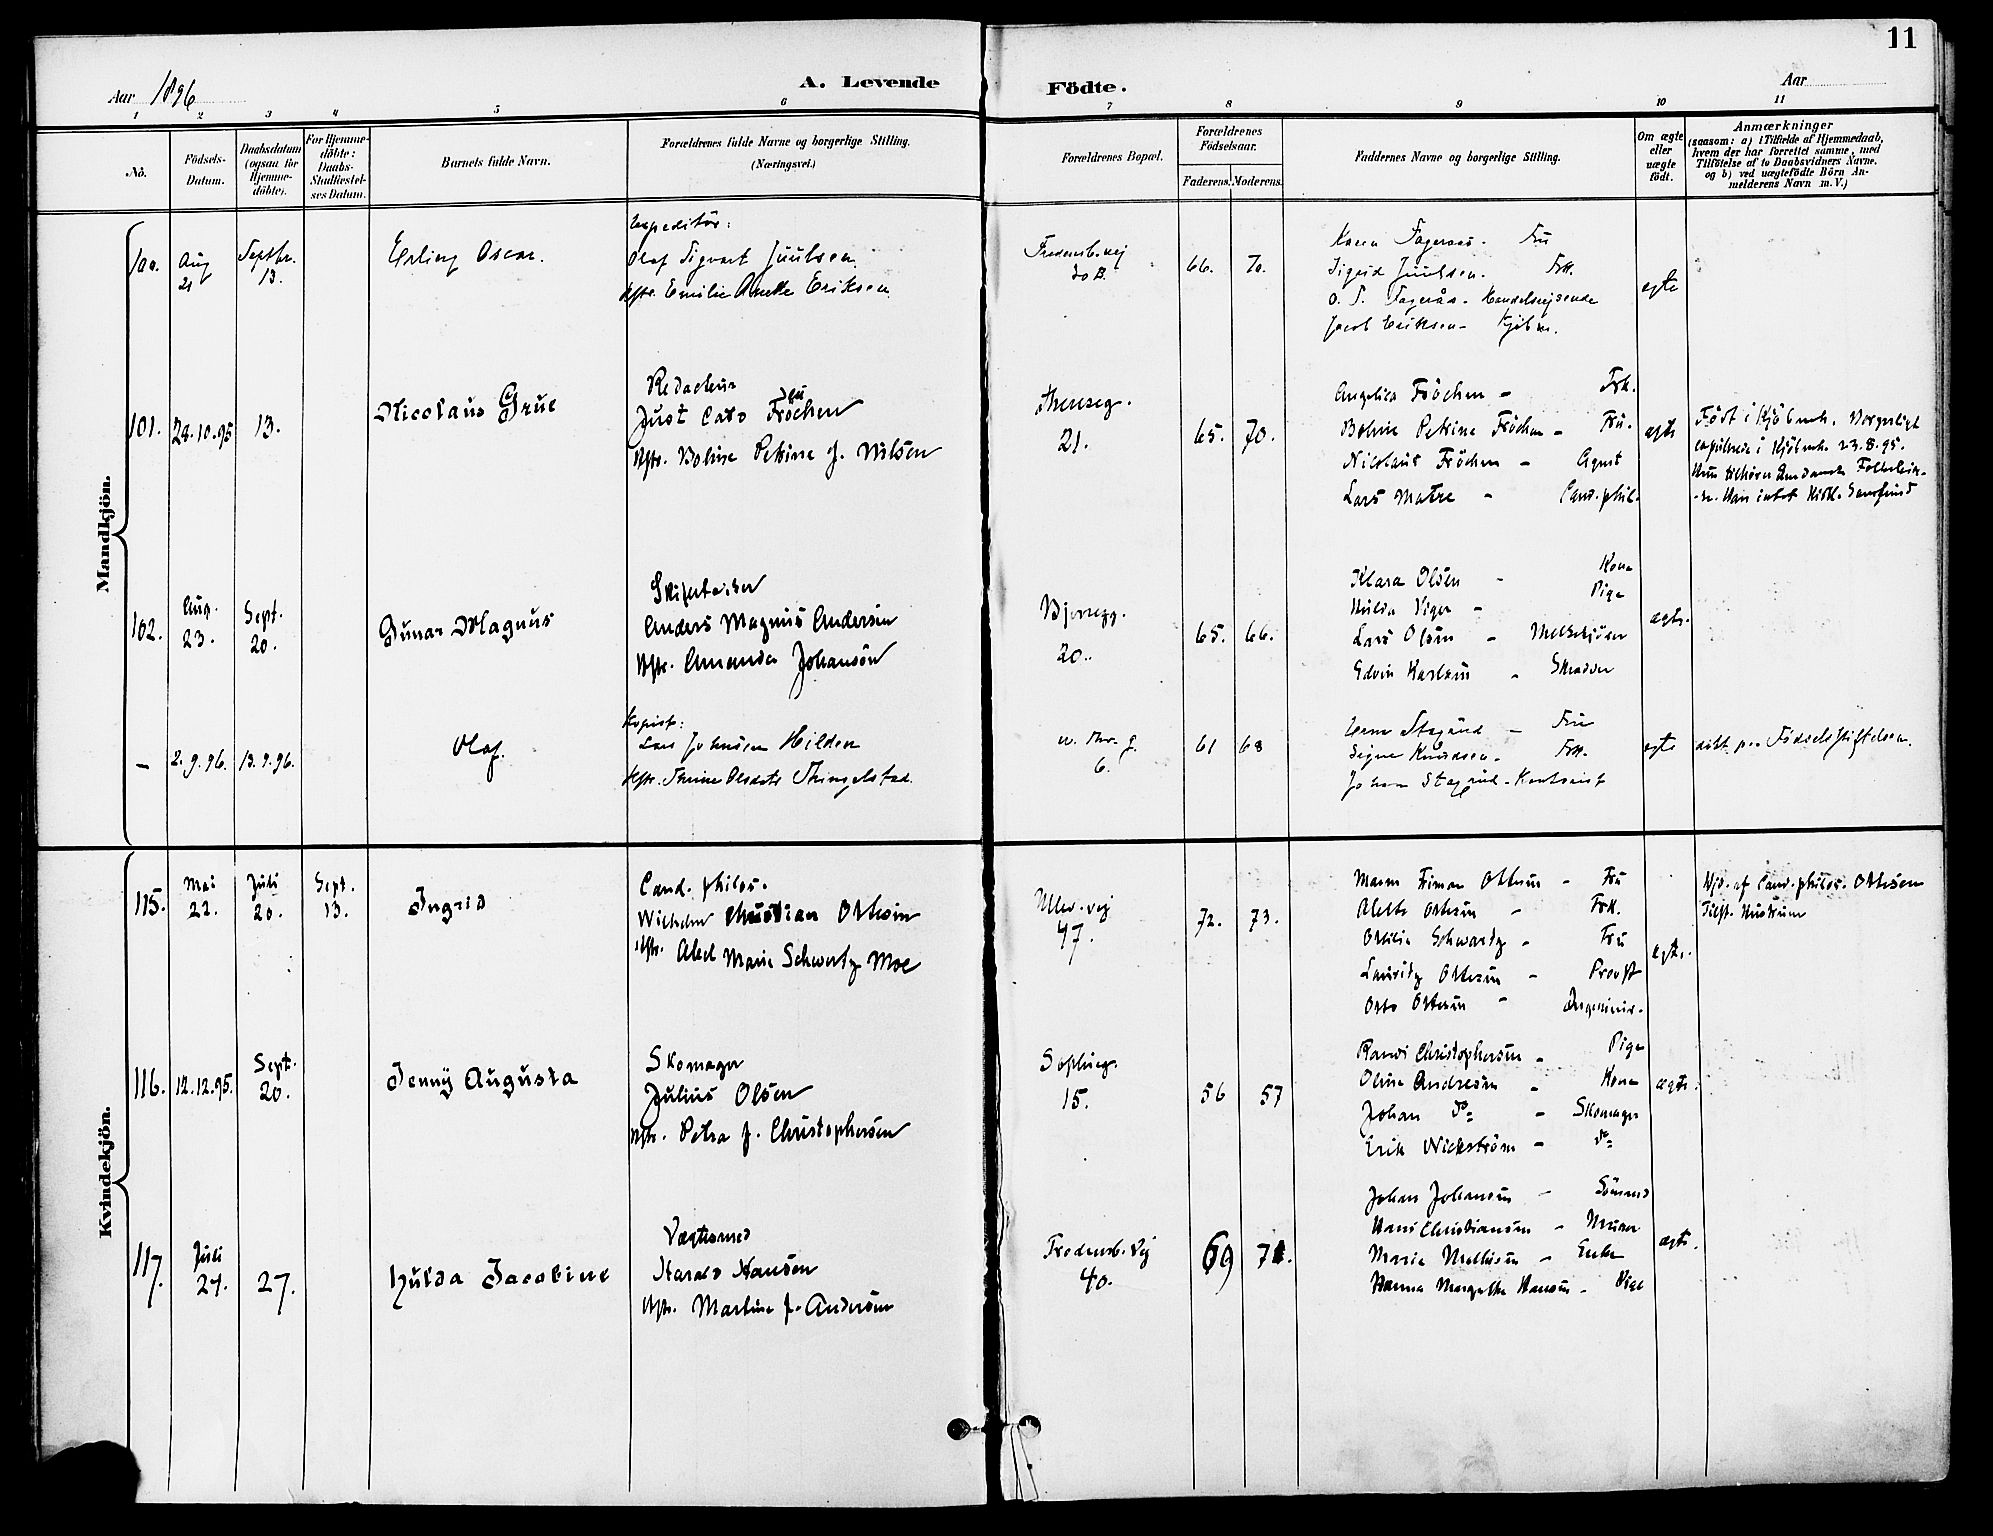 11
Aar 1896
A. Levende Födte.
Aar
1 2 3 4 5 6 7 8 9 10 11
No.
Födsels-Datum.
Daabsdatum (ogsaa for Hjemme-döbte).
For Hjemme-döbte: Daabs-Stadfæstel-ses Datum.
Barnets fulde Navn.
Forældrenes fulde Navne og borgerlige Stilling.
(Næringsvei.)
Forældrenes Bopæl.
Forældrenes Födselsaar.
Faderens. Moderens.
Faddernes Navne og borgerlige Stilling.
Om ægte eller uægte födt.
Anmærkninger
(saasom: a) i Tilfælde af Hjemmedaab,
hvem der har forrettet samme, med
Tilföielse af to Daabsvidners Navne,
og b) ved uægtefödte Börn An-
melderens Navn m. V.)
Mandkjön.
100. Aug 21 Septbr. 13. Erling Oscar.
Expeditör:
Olaf Sigvart Juulsen
Hstr. Emilie Anette Eriksen
Fredensb.vej 30 B. 66. 70.
Karen Fageraas - Fru
Sigrid Juulsen. Frk.
O. T. Fagerås - Handelsrejsende
Jacob Eriksen - Kjöbm.
egte
101. 28.10.95 13. Nicolaus Grue
Redacteur
Just Cato Fröchen
Hstr. Boline Petrine f. Nilsen
Thereseg. 21. 65. 70.
Angelica Fröchen - Frk.
Boline Petrine Fröchen - Fru.
Nicolaus Fröchen - Agent
Lars Matre - Cand. phil.
egte
Födt i Kjöbenh. Borgerligt
copulerede i Kjöbenh. 23.8.95.
Hun tilhörer den danske Folkekirk-
e. Han intet Kirkl. Samfund
102. Aug. 23. Sept. 20. Gunar Magnus
Anders Magnus Andersen
Hstr. Amanda Johansön
Bjerregg. 20. 65. 66.
Klara Olsen - Kone
Hulda Viger - Pige
Lars Olsen - Melkekjörer
Edvin Karlsen - Skrædder
egte.
- 2.9.96. 13.9.96. Olaf.
Kopist:
Lars Johnsen Hilden
Hstr. Thrine Olsdatr. Thingelstad
6. 61 68
Stagrud - Fru
Signe Knudsen - Frk.
Johan Stagrud - Kontorist
egte
döbt paa Födselsstiftelsen.
Kvindekjön.
115. Mai 22. Juli 20. Sept. 13. Ingrid
Cand. philos.
Wilhelm Christian Ottesen
Hstr. Abel Marie Schwartz Moe
Ullev.vej 47. 72. 73.
Maren Ottesen - Fru
Alette Ottesen - Frk.
Ottilia Schwartz - Fru
Lauritz Ottesen - Provst
Otto Ottesen - Ingeniör.
egte.
Hjd. af Cand. philos. Ottesen
Tilst. Hustruen
116. 12.12.95. Sept. 20. Jenny Augusta
Skomager
Julius Olsen
Hstr. Petra f. Christophersen
Sophieg. 15. 56 57
Randi Christophersen - Pige
Oline Andresen - Kone
Johan Do = - Skomager
Erik Wickström - do =
ægte.
117. Juli 24. 27. Hulda Jacobine
Vægtermd
Harald Hansen
Hstr. Martine f. Andersen
Fredensb. Vej 40. 69 71.
Johan Johansen - Sömand
Hans Christiansen - Murer
Marie Mathisen - Enke
Hanna Margethe Hansen - Pige
ægte.